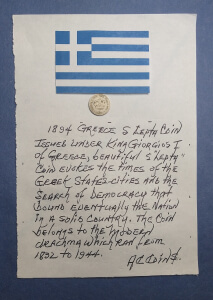 1894 GREECE 5 Lepta Coin
Issued under King Giorgios I
of Greece, beautiful 5 "Lepta"
Coin evokes the times of the
Greek States-cities and the
Search of Democracy that
bound eventually the Nation
in a solid country. The coin
belongs to the modern
drachma which ran from
1832 to 1944.